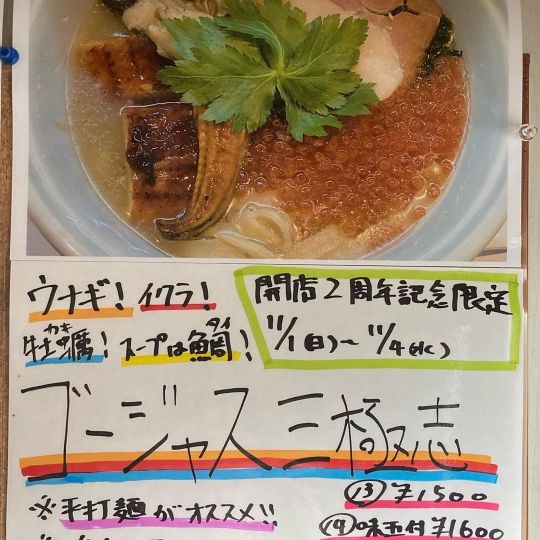 ウナギ! イクラ!
開店2周年記念限定
カキ
牡蠣! スープは鯛!
タイ
11/1(日)~11/4(水)
ゴージャス三極志
⑬ ¥1500
※平打麺がオススメ!!
⑭味玉付¥1600